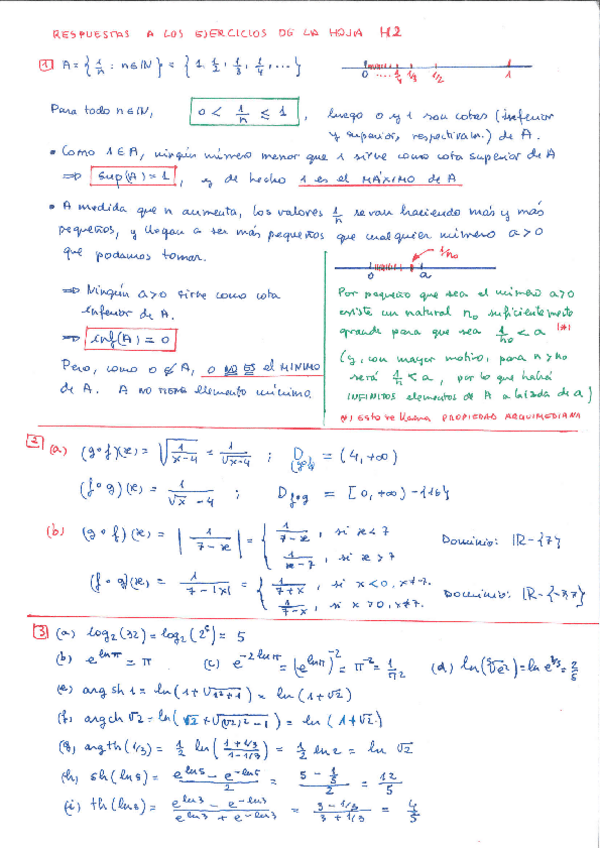 RESPUESTAS A LOS EJERCICIOS DE LA HOJA H2
1 A = { 1/n : n ∈ ℕ } = { 1, 1/2, 1/3, 1/4, ... }
0 .... 1/4 1/3 1/2 1
Para todo n ∈ ℕ, 0 < 1/n ≤ 1, luego 0 y 1 son cotas (inferior
y superior, respectivam.) de A.
• Como 1 ∈ A, ningún número menor que 1 sirve como cota superior de A
⇒ sup(A) = 1, y de hecho 1 es el MÁXIMO de A
• A medida que n aumenta, los valores 1/n se van haciendo más y más
pequeños, y llegan a ser más pequeños que cualquier número a > 0
que podamos tomar.
⇒ Ningún a > 0 sirve como cota
inferior de A.
⇒ inf(A) = 0
Pero, como 0 ∉ A, 0 NO ES el MINIMO
de A. A NO TIENE elemento mínimo.
1/n₀
0 a
Por pequeño que sea el número a > 0
existe un natural n₀ suficientemente
grande para que sea 1/n₀ < a (*)
(y, con mayor motivo, para n > n₀
será 1/n < a, por lo que habrá
INFINITOS elementos de A a la izda de a)
(*) Esto se llama PROPIEDAD ARQUIMEDIANA
2 (a) (g∘f)(x) = √(1/(x-4)) = 1/√(x-4) ; D(g∘f) = (4, +∞)
(f∘g)(x) = 1/(√x - 4) ; D f∘g = [0, +∞) - {16}
(b) (g∘f)(x) = | 1/(7-x) | = { 1/(7-x), si x < 7
1/(x-7), si x > 7 Dominio: ℝ - {7}
(f∘g)(x) = 1/(7-|x|) = { 1/(7+x), si x < 0, x ≠ -7.
1/(7-x), si x > 0, x ≠ 7. Dominio: ℝ - {-7,7}
3 (a) log₂(32) = log₂(2⁵) = 5
(b) e^(ln π) = π (c) e^(-2 ln π) = (e^(ln π))^(-2) = π^(-2) = 1/π² (d) ln(⁵√e²) = ln e^(2/5) = 2/5
(e) arg sh 1 = ln(1 + √(1²+1)) = ln(1 + √2)
(f) argch √2 = ln(√2 + √((√2)² - 1)) = ln(1 + √2)
(g) argth(1/3) = 1/2 ln((1 + 1/3)/(1 - 1/3)) = 1/2 ln 2 = ln √2
(h) sh(ln 5) = (e^(ln 5) - e^(-ln 5))/2 = (5 - 1/5)/2 = 12/5
(i) th(ln 3) = (e^(ln 3) - e^(-ln 3))/(e^(ln 3) + e^(-ln 3)) = (3 - 1/3)/(3 + 1/3) = 4/5